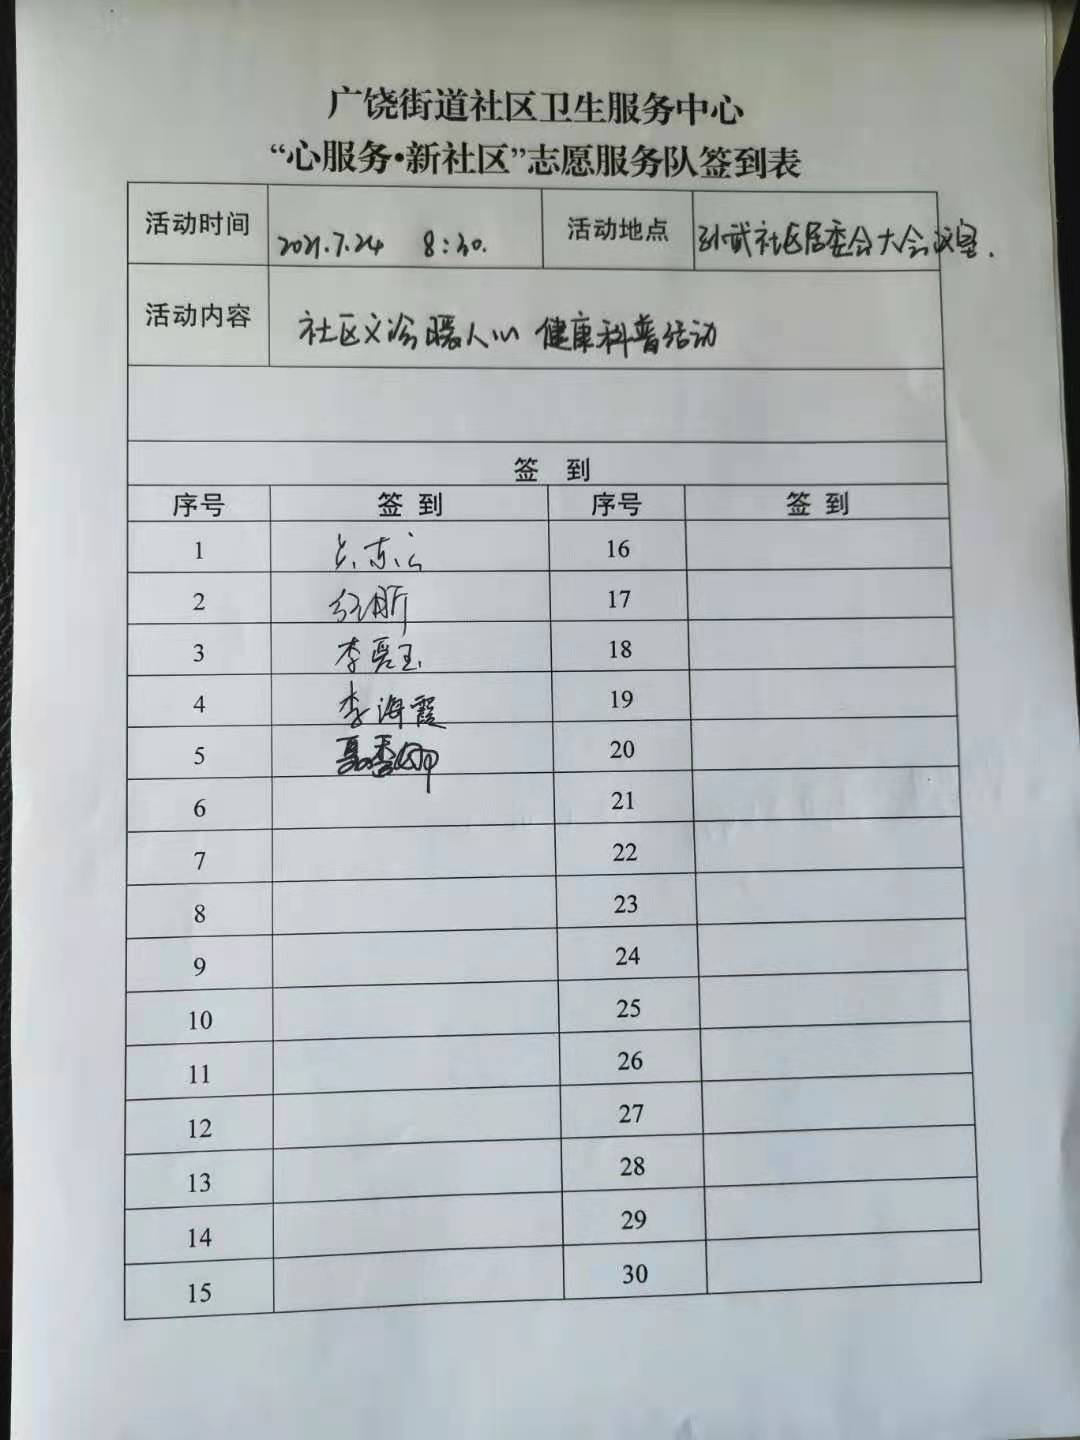 广饶街道社区卫生服务中心
“心服务·新社区”志愿服务队签到表
活动时间 2021.7.24 8:30. 活动地点 孙武社区居委会大会议室.
活动内容 社区义诊暖人心 健康科普活动
签 到
序号 签到 序号 签到
1 16
2 17
3 李 玉 18
4 李海霞 19
5 聂香娜 20
6 21
7 22
8 23
9 24
10 25
11 26
12 27
13 28
14 29
15 30